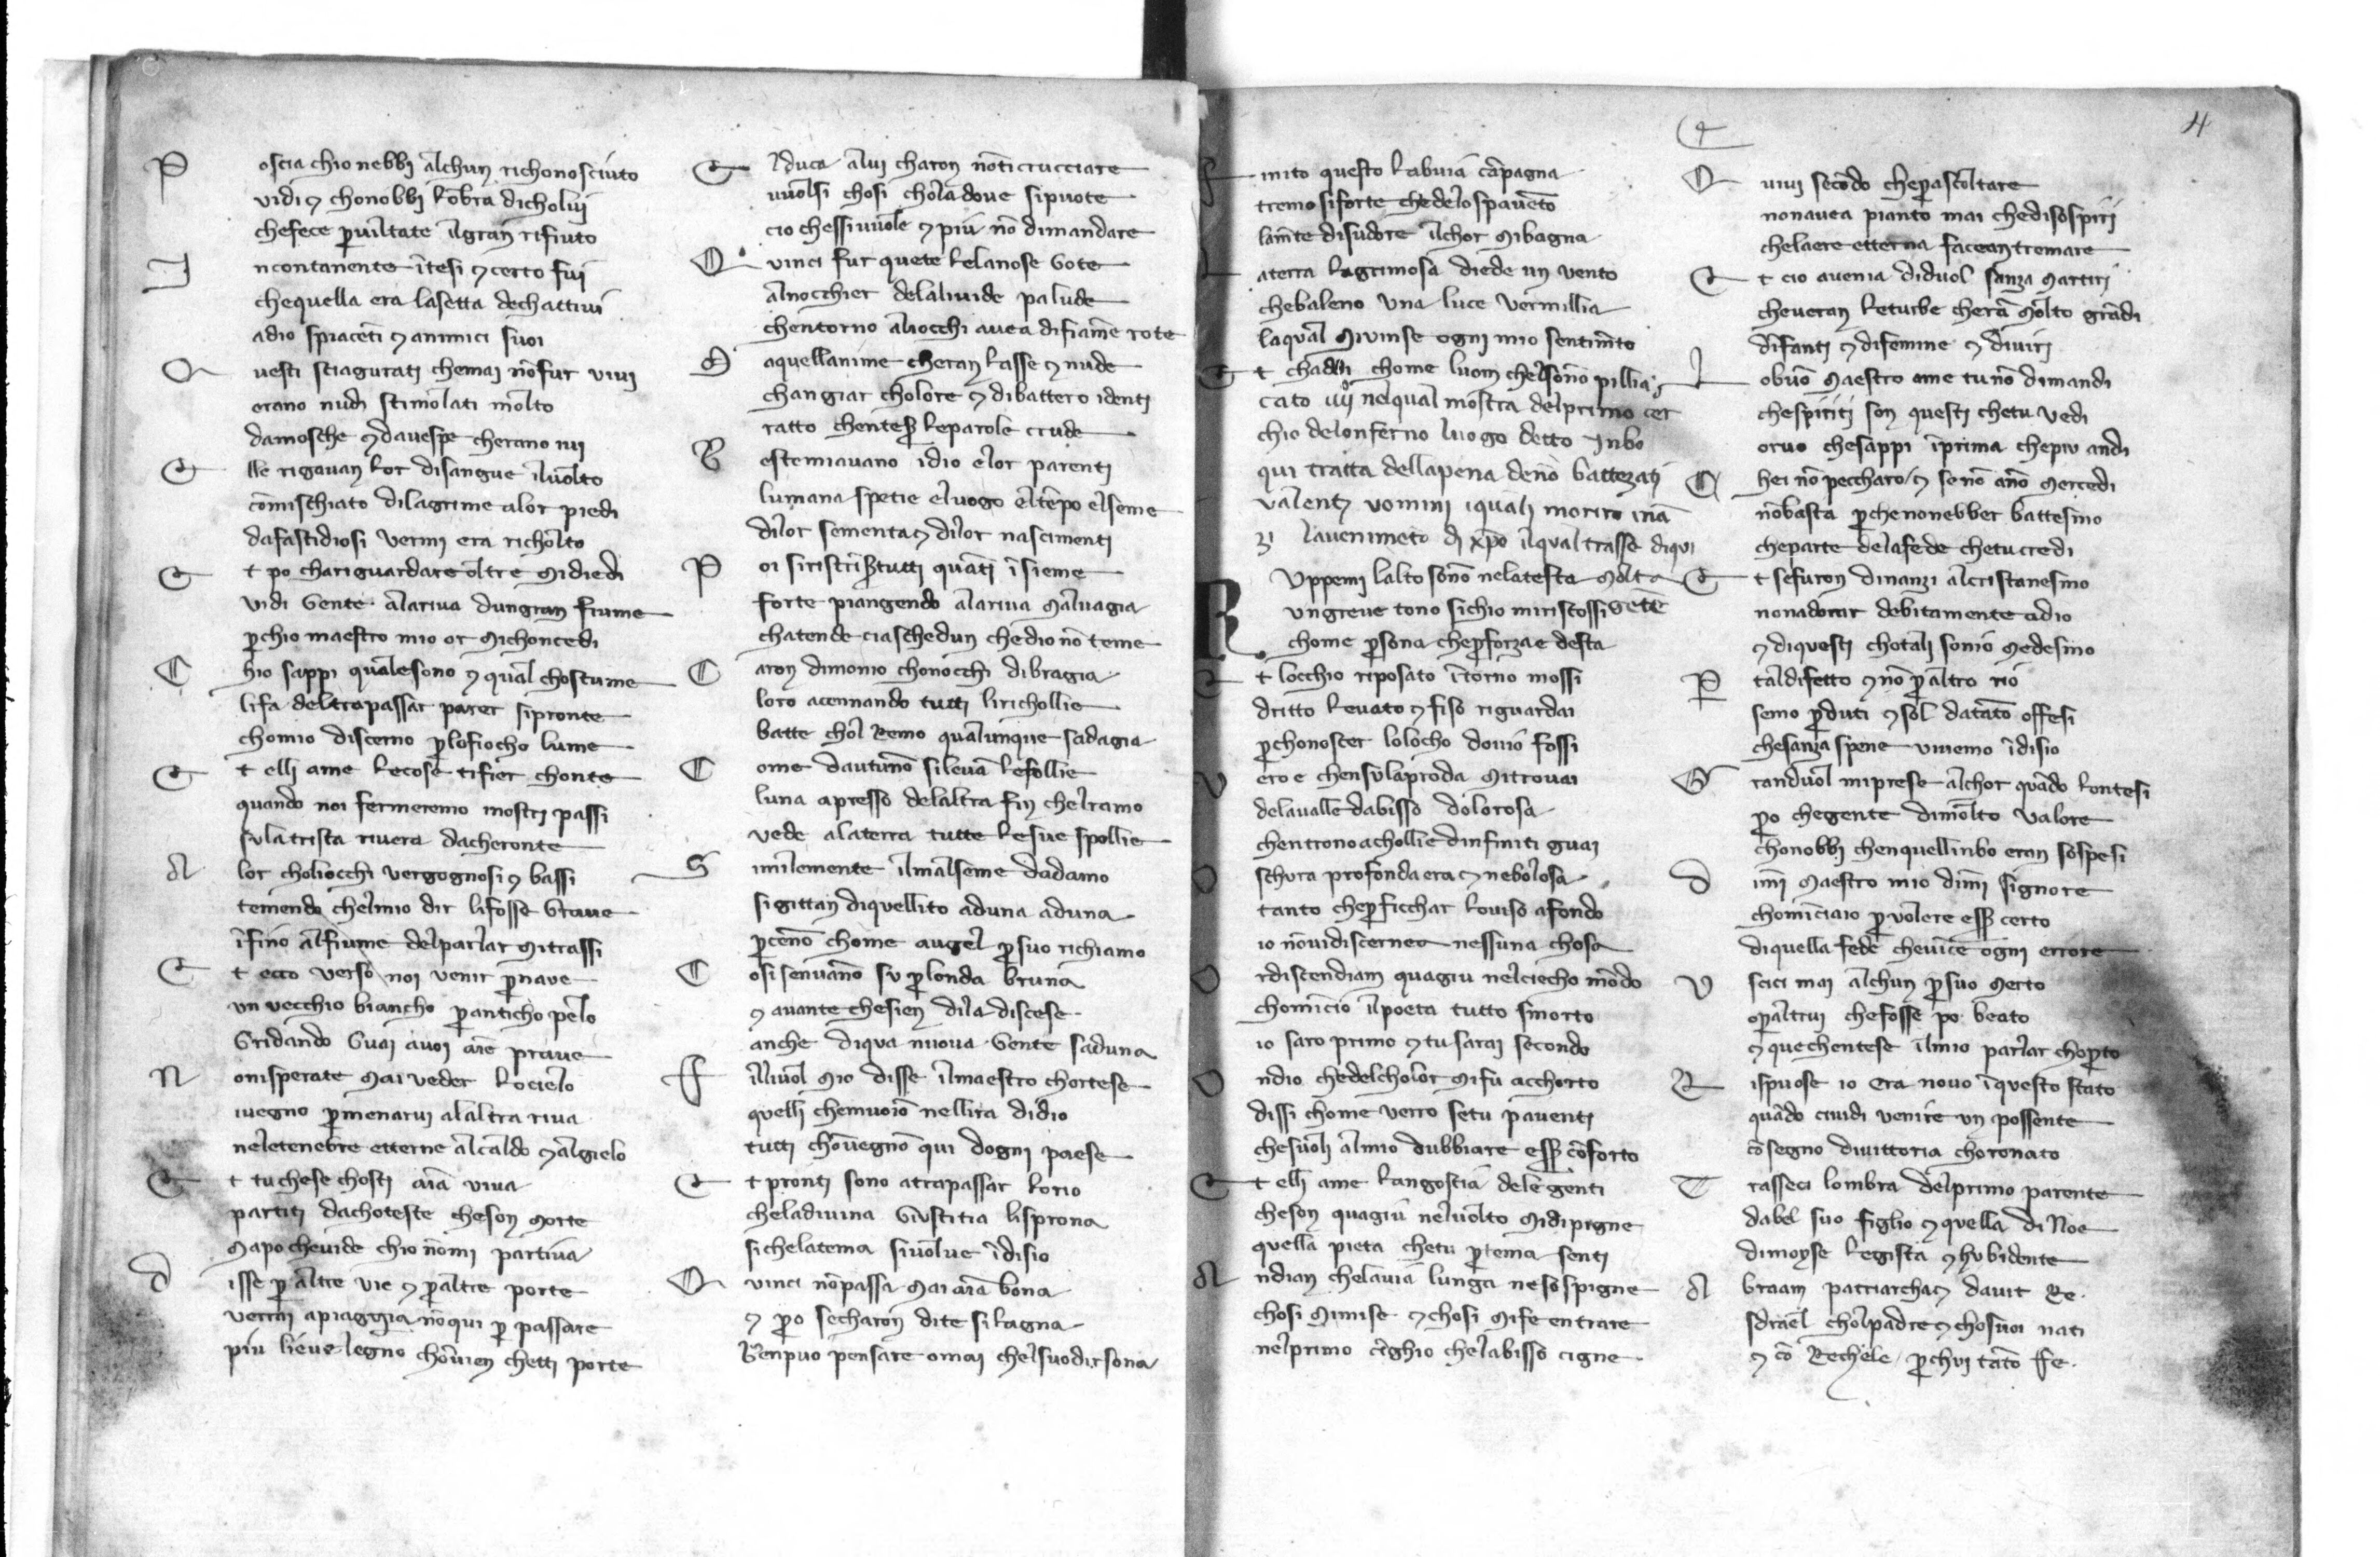 Poscia chio nebbi alchun richonosciuto
vidi ⁊ chonobbi lōbra dicholui
chefece ꝑuiltate ilgran rifiuto
Incontanente ītesi ⁊ certo fui
chequella era lasetta dechattiui
adio spiacēti ⁊ animici suoi
Questi sciagurati chemai nōfur viui
erano nudi stimolati molto
damosche ⁊ dauespe cherano iui
Elle rigauan lor disangue iluolto
cōmischiato dilagrime alor piedi
dafastidiosi vermi era richolto
Et po chariguardare oltre midiedi
vidi gente alariua dungran fiume
ꝑchio maestro mio or michoncedi
Chio sappi qualesono ⁊ qual chostume
lifa deltrapassar parer sipronte
chomio discerno ꝑlofiocho lume
Et elli ame lecose tifier chonte
quando noi fermeremo nostri passi
sulatrista riuera dacheronte
Alor choliocchi vergognosi ⁊ bassi
temendo chelmio dir lifosse graue
īfino alfiume delparlar mitrassi
Et ecco verso noi venir ꝑnaue
vn vecchio biancho ꝑanticho pelo
Gridando Guai auoi aīe praue
Nonisperate mai veder locielo
iuegno ꝑmenarui alaltra riua
neletenebre etterne alcaldo ⁊ algielo
Et tuchese chosti aīa viua
partiti dachoteste cheson morte
mapo cheuide chio nōmi partiua
disse ꝑ altre vie ⁊ ꝑaltre porte
verrai apiaggia nōqui ꝑ passare
piu lieue legno chōuien chetti porte
Elduca alui charon nōti crucciare
vuolsi chosi chola doue sipuote
cio chessiuuole ⁊ piu nō dimandare
Quinci fur quete lelanose gote
alnocchier delaliuide palude
chentorno aliocchi auea difiāme rote
Maquellanime cheran lasse ⁊ nude
changiar cholore ⁊ dibattero identi
ratto chenteser leparole crude
Bestemiauano idio elor parenti
lumana spetie eluogo eltēpo elseme
dilor sementa ⁊ dilor nascimenti
Poi siristrīser tutti quāti īsieme
forte piangendo alariua maluagia
chatende ciaschedun chedio nō teme
Caron dimonio chonocchi dibragia
loro accennando tutti lirichollie
batte chol remo qualunque sadagia
Come dautunno sileuā lefollie
luna apresso delaltra fin chelramo
vede alaterra tutte lesue spollie
Similemente ilmalseme dadamo
sigittan diquellito aduna aduna
ꝑcenno chome augel ꝑsuo richiamo
Cosi senuanno su ꝑlonda bruna
⁊ auante chesien dila discese
anche diqua nuoua gente saduna
Filliuol mio disse ilmaestro chortese
quelli chemuoiō nellira didio
tutti chōuegnō qui dogni paese
Et pronti sono atrapassar lorio
cheladiuina Giustitia lisprona
sichelatema siuolue īdisio
Quinci nōpassa mai aīa bona
⁊ ꝑo secharon dite silagna
benpuo pensare omai chelsuodirsona
4
Finito questo labuia cāpagna
tremo siforte chedelospauēto
lamēte disudore ilchor mibagna
Laterra lagrimosa diede un vento
chebaleno una luce vermillia
laqual miuinse ogni mio sentimēto
Et chaddi chome luom chelsonno pillia
cato iiij nelqual mostra delprimo cer
chio delonferno luogo detto Inbo
qui tratta dellapena denō battezati
valenti vomini iquali moriro inā
zi lauenimēto di xpo ilqual trasse diqui
molta gēte
Ruppemi lalto sonno nelatesta
vngreue tono sichio miriscossi
chome ꝑsona cheꝑforzae desta
Et locchio riposato ītorno mossi
dritto leuato ⁊ fiso riguardai
ꝑchonoscer lolocho douio fossi
Vero e chensulaproda mitrouai
delaualle dabisso dolorosa
chentrono achollie dinfiniti guai
Oschura profonda era ⁊ nebolosa
tanto cheꝑficchar louiso afondo
io nōuidiscernea nessuna chosa
Ordiscendiam quagiu nelciecho mōdo
chomīcio ilpoeta tutto smorto
io saro primo ⁊ tu sarai secondo
Ondio chedelcholor mifu acchorto
dissi chome verro setu pauenti
chesuoli almio dubbiare esser cōforto
Et elli ame langoscia delegenti
cheson quagiu neluolto midipigne
quella pieta chetu ꝑtema senti
Andian chelauia lunga nesospigne
chosi mimise ⁊ chosi mife entrare
nelprimo cīghio chelabisso cigne
Quiui secōdo cheꝑascoltare
nonauea pianto mai chedisospiri
chelaere etterna faceantremare
Et cio auenia diduol sanza martiri
cheueran leturbe cherā molto grādi
dīfanti ⁊ difemine ⁊ diuiri
Lobuō maestro ame tunō dimandi
chespiriti son questi chetu vedi
oruo chesappi īprima chepiu andi
Chei nō peccharo ⁊ senō āno mercedi
nōbasta ꝑchenonebber battesmo
cheparte delafede chetucredi
Et sefuron dinanzi alcristianesmo
nonadorar debitamente adio
⁊ diquesti chotali sonio medesmo
Per taldifetto ⁊ nō ꝑ altro rio
semo ꝑduti ⁊ sol datāto offesi
chesanza spene viuemo īdisio
Granduol miprese alchor quādo lontesi
ꝑo chegente dimolto valore
chonobbi chenquellinbo eran sospesi
dimi maestro mio dimi signore
chomīciaio ꝑ volere esser certo
diquella fede cheuīce ogni errore
Vscici mai alchun ꝑsuo merto
oꝑaltrui chefosse po beato
⁊ quechentese ilmio parlar choꝑto
Rispuose io era nouo īquesto stato
quādo ciuidi venire vn possente
cō segno diuittoria choronato
Trasseci lombra delprimo parente
dabel suo figlio ⁊ quella di Noe
dimoyse legista ⁊ hubidente
Abraam patriarcha ⁊ dauit Re
sdrael cholpadre ⁊ chosuoi nati
⁊ cō Rechele ꝑchui tāto fe